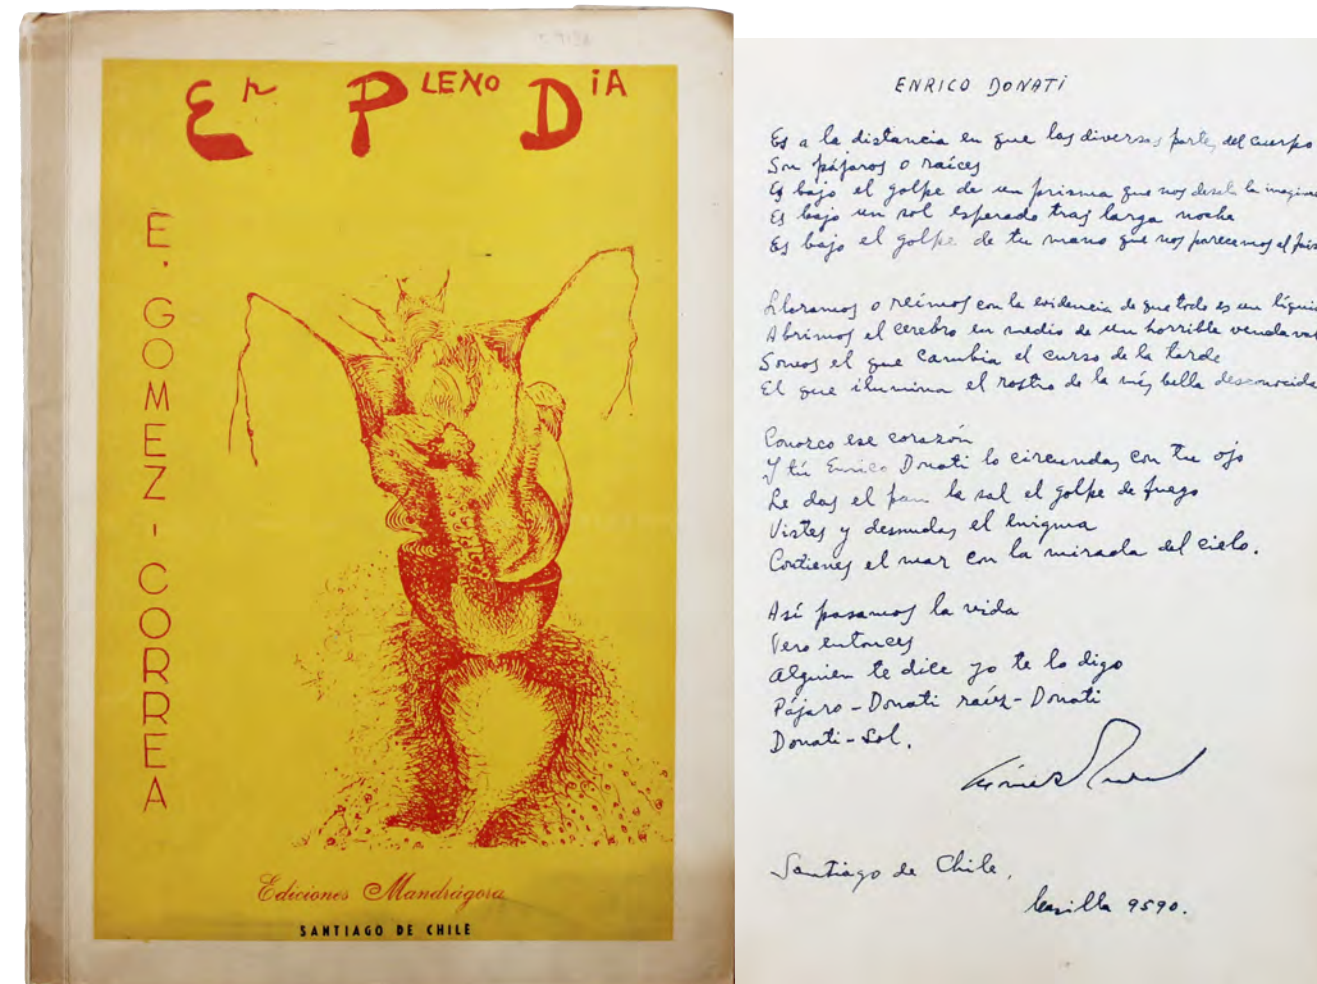 En Pleno Dia
E. GOMEZ-CORREA
Ediciones Mandrágora
SANTIAGO DE CHILE
ENRICO DONATI
Es a la distancia en que las diversas partes del cuerpo
Son pájaros o raíces
Es bajo el golpe de un prisma que nos desela la imagina
Es bajo un sol esperado tras larga noche
Es bajo el golpe de tu mano que nos parecemos al
Lloramos o reímos con la evidencia de que todo es un líqui
Abrimos el cerebro en medio de un horrible vendaval
Somos el que cambia el curso de la tarde
El que ilumina el rostro de la más bella desconocida
Conozco ese corazón
Y tú Enrico Donati lo circundas con tu ojo
Le das el pan la sal el golpe de fuego
Vistes y desnudas el enigma
Contienes el mar con la mirada del cielo.
Así pasamos la vida
Pero entonces
Alguien te dice yo te lo digo
Pájaro-Donati raíz-Donati
Donati-Sol.
Santiago de Chile,
Casilla 9590.